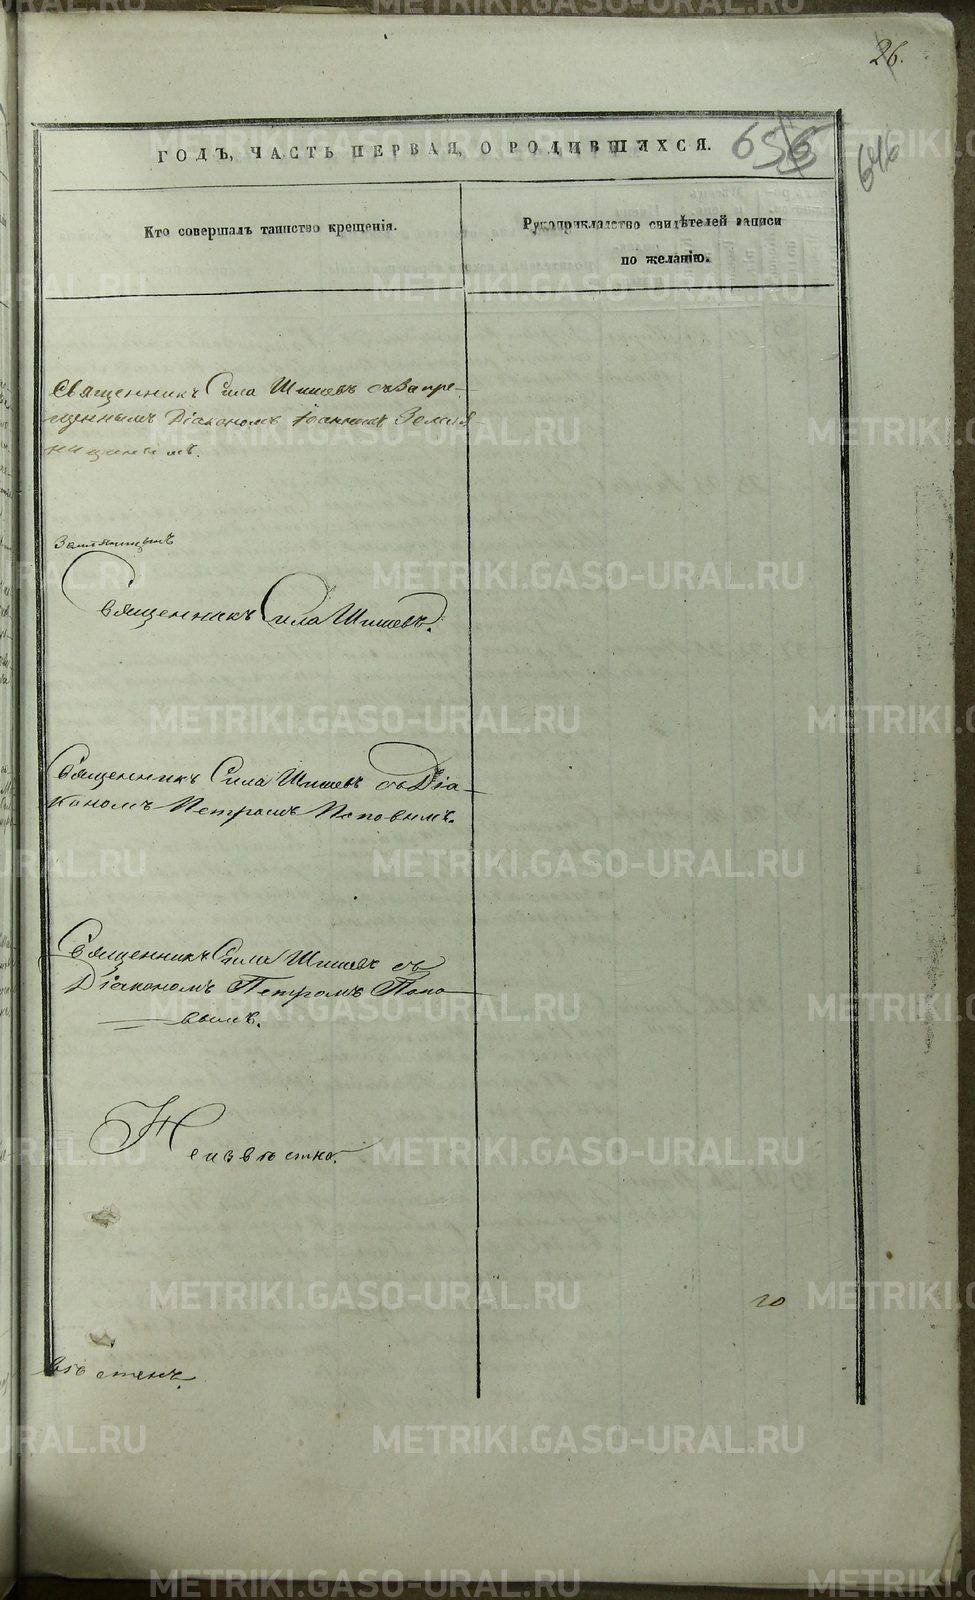 26.
ГОДЪ, ЧАСТЬ ПЕРВАЯ, О РОДИВШИХСЯ.
646
Кто совершалъ таинство крещенія.
Рукоприкладство свидѣтелей записи
по желанію.
Священникъ Сила Шишевъ съ запре-
щеннымъ Діакономъ Іоанномъ
Священникъ Сила Шишевъ.
Священникъ Сила Шишевъ съ Діа-
кономъ Петромъ Поповымъ.
Священникъ Сила Шишевъ съ
Діакономъ Петромъ Попо-
вымъ.
Неизвѣстно.
20
METRIKI.GASO-URAL.RU